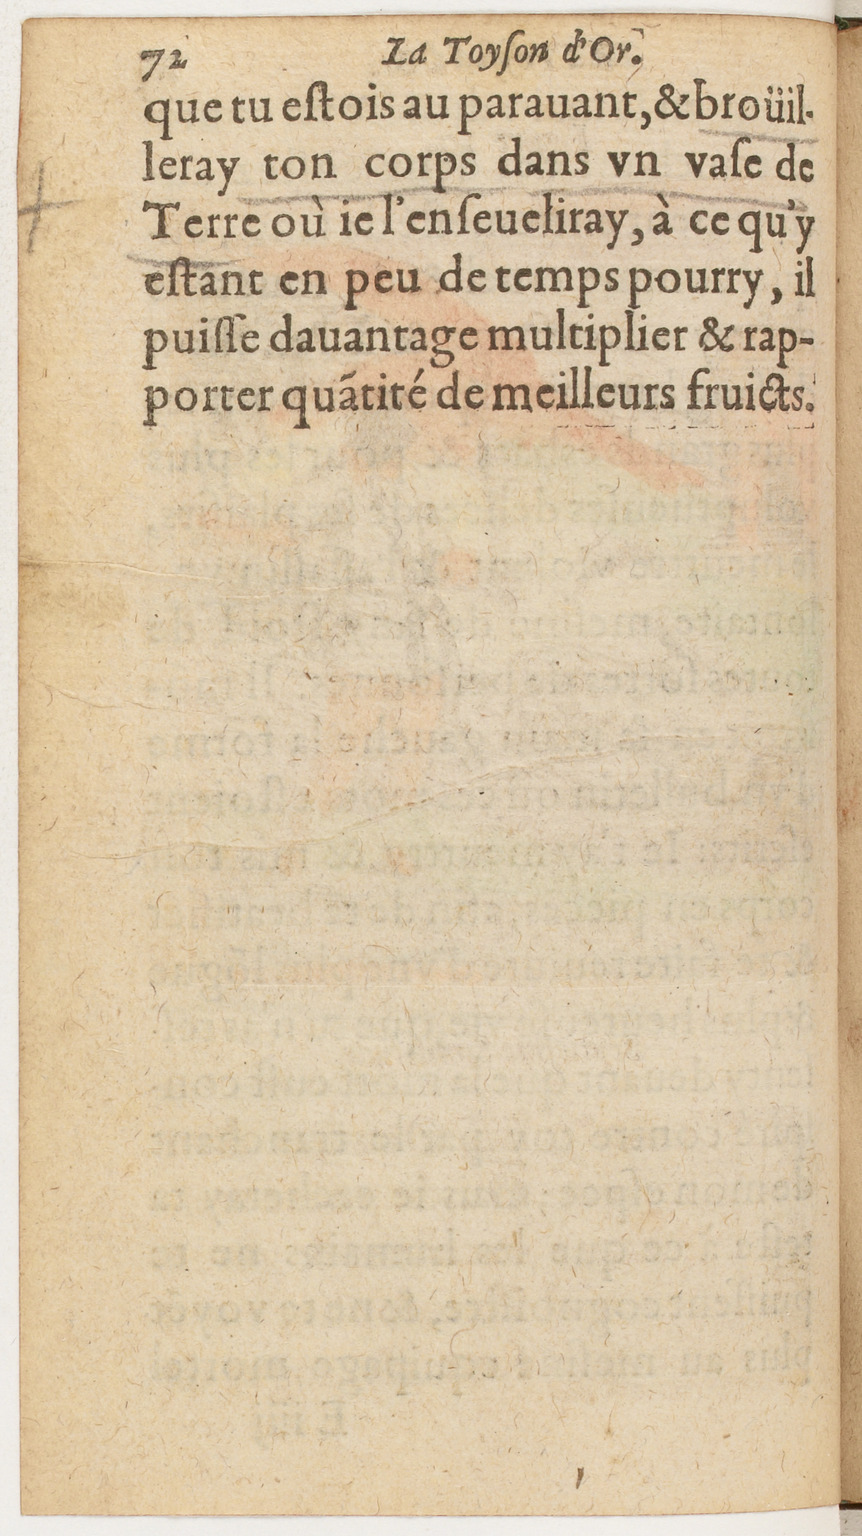 72 La Toyſon d'Or.
que tu eſtois au parauant, & broüil-
leray ton corps dans vn vaſe de
Terre où ie l'enſeueliray, à ce qu'y
eſtant en peu de temps pourry, il
puiſſe dauantage multiplier & rap-
porter quãtité de meilleurs fruicts.